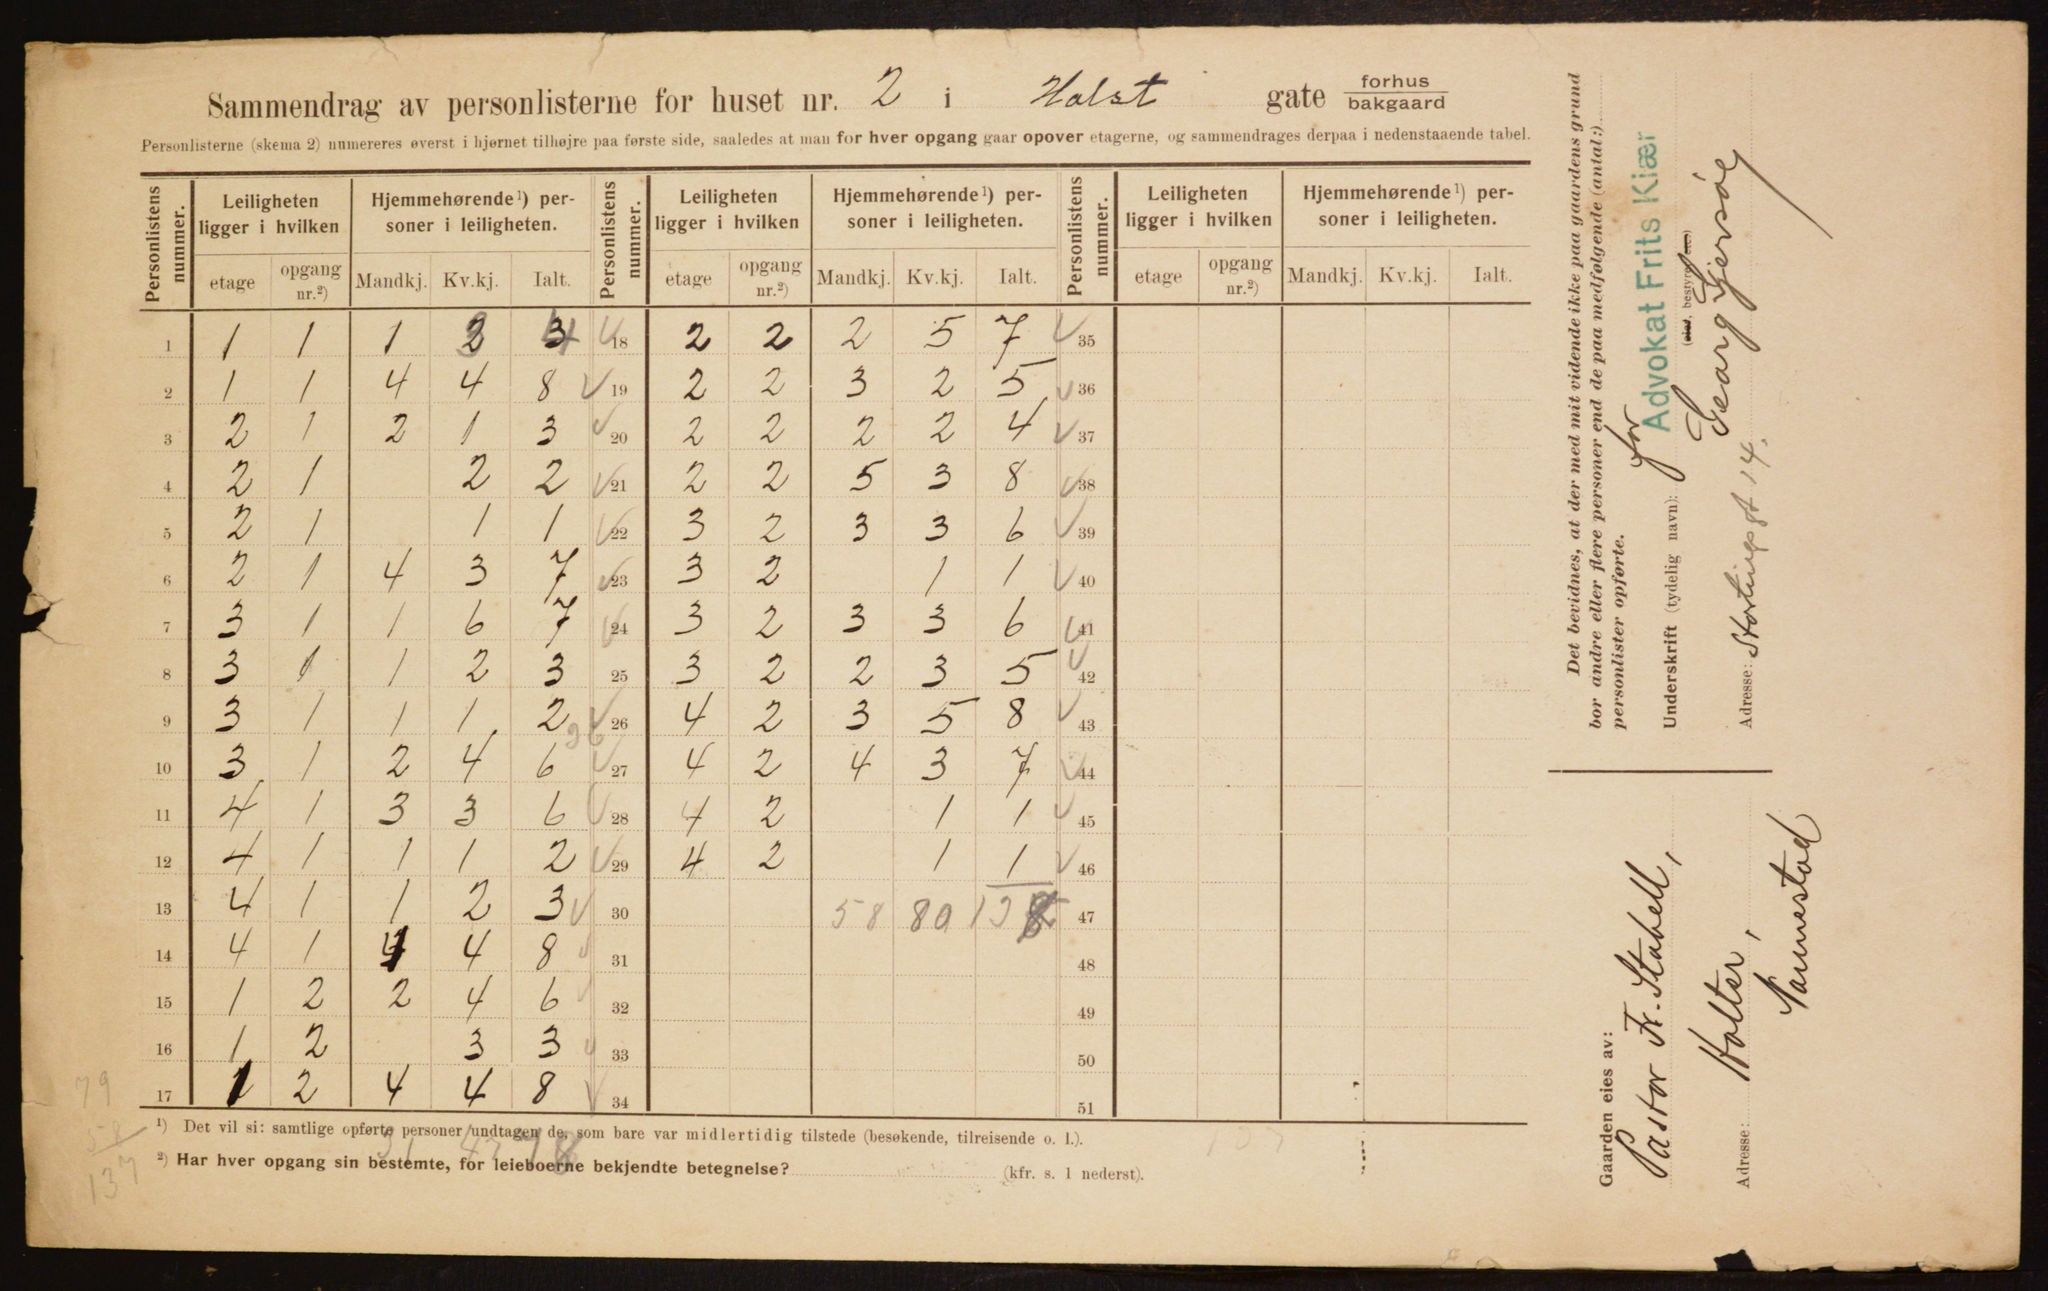 Sammendrag av personlisterne for huset nr. 2 i Holst gate forhus
bakgaard
Personlisterne (skema 2) numereres øverst i hjørnet tilhøjre paa første side, saaledes at man for hver opgang gaar opover etagerne, og sammendrages derpaa i nedenstaaende tabel.
Personlistens nummer. Leiligheten ligger i hvilken Hjemmehørende¹) personer i leiligheten. Personlistens nummer. Leiligheten ligger i hvilken Hjemmehørende¹) personer i leiligheten. Personlistens nummer. Leiligheten ligger i hvilken Hjemmehørende¹) personer i leiligheten.
etage opgang nr.²) Mandkj. Kv.kj. Ialt. etage opgang nr.²) Mandkj. Kv.kj. Ialt. etage opgang nr.²) Mandkj. Kv.kj. Ialt.
1 1 1 1 18 2 2 2 5 7 35
2 1 1 4 4 8 19 2 2 3 2 5 36
3 2 1 2 1 3 20 2 2 2 2 4 37
4 2 1 2 2 21 2 2 5 3 8 38
5 2 1 1 1 22 3 2 3 3 6 39
6 2 1 4 3 7 23 3 2 1 1 40
7 3 1 1 6 7 24 3 2 3 3 6 41
8 3 1 1 2 3 25 3 2 2 3 5 42
9 3 1 1 1 2 26 4 2 3 5 8 43
10 3 1 2 4 6 27 4 2 4 3 7 44
11 4 1 3 3 6 28 4 2 1 1 45
12 4 1 1 1 2 29 4 2 1 1 46
13 4 1 1 2 3 30 58 80 47
14 4 1 4 4 8 31 48
15 1 2 2 4 6 32 49
16 1 2 3 3 33 50
17 1 2 4 4 8 34 51
79
58
137
¹) Det vil si: samtlige opførte personer undtagen de, som bare var midlertidig tilstede (besøkende, tilreisende o. l.).
²) Har hver opgang sin bestemte, for leieboerne bekjendte betegnelse? (kfr. s. 1 nederst).
Det bevidnes, at der med mit vidende ikke paa gaardens grund
bor andre eller flere personer end de paa medfølgende (antal:)
personlister opførte.
for
Advokat Frits Kiær
Underskrift (tydelig navn): Georg
Adresse: Stortingsgt 14.
Gaarden eies av:
Pastor Fr. Stabell,
Adresse: Holter,
Nannestad